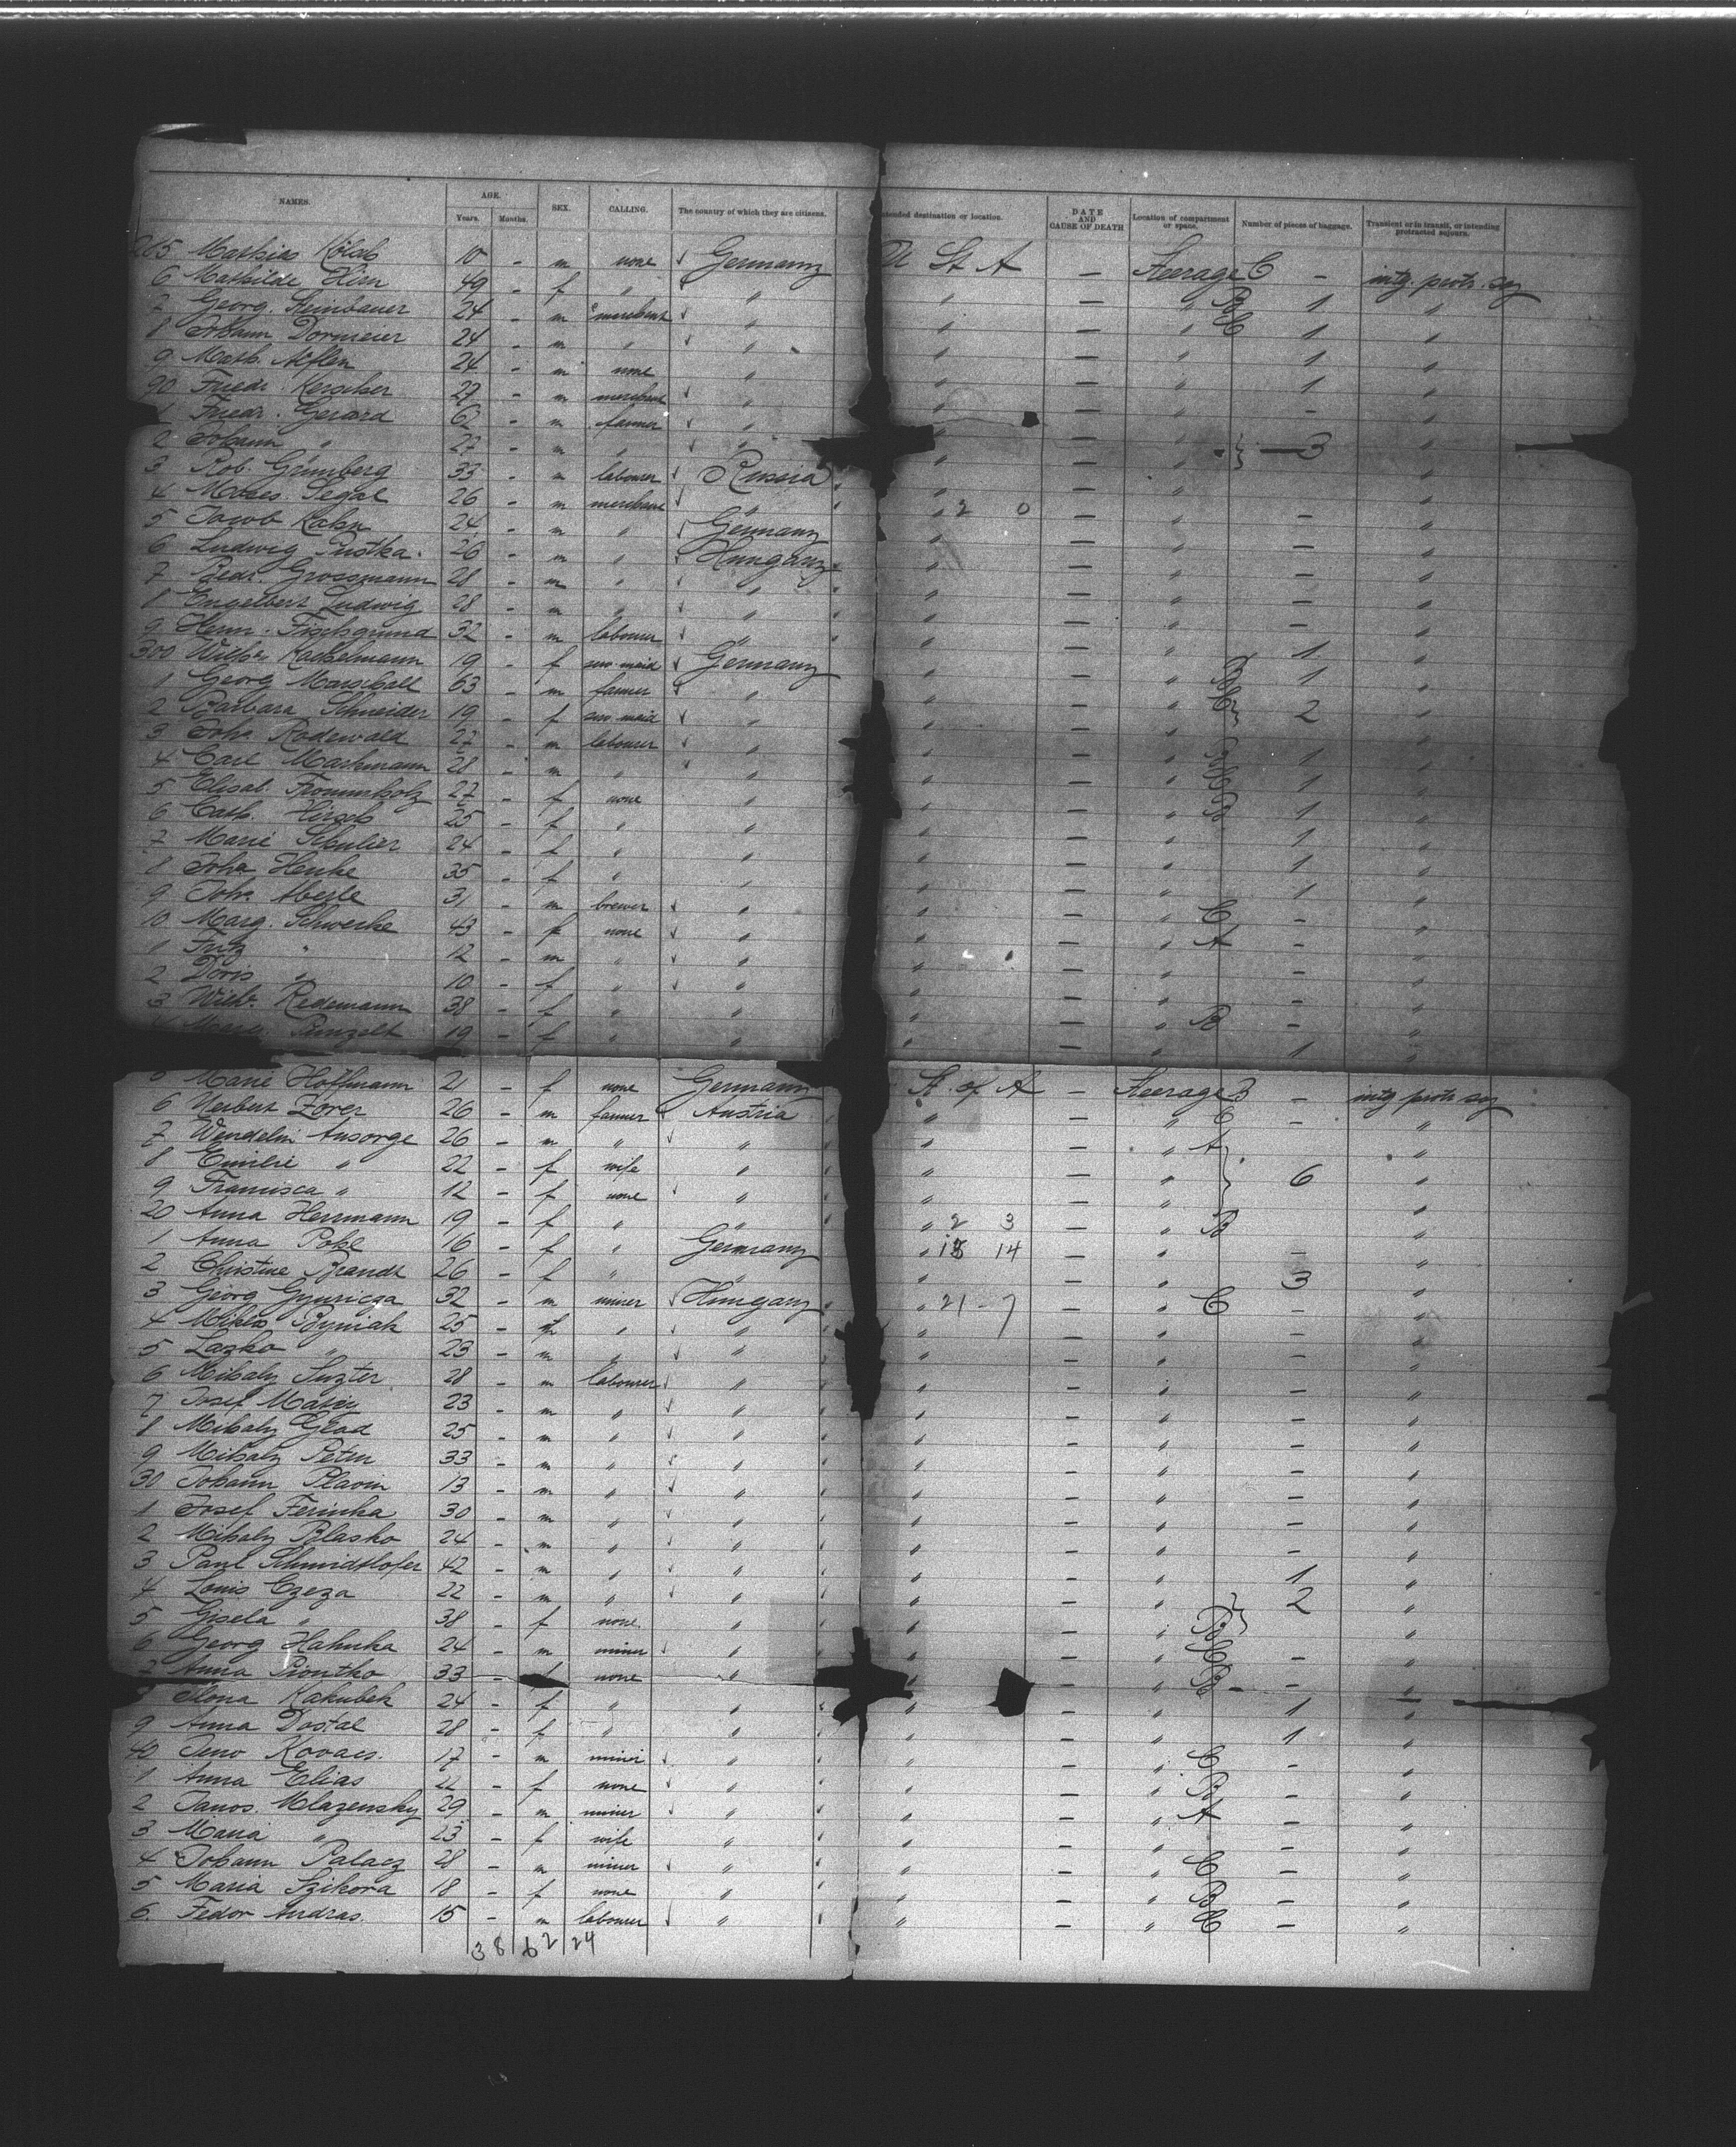 NAMES. AGE. SEX. CALLING. The country of which they are citizens. ntended destination or location. DATE AND CAUSE OF DEATH Location of compartment or space. Number of pieces of baggage. Transient or in transit, or intending protracted sojourn.
Years. Months.
285 Mathias 10 - m none Germany U St A - Steerage C - intg. protr. soj
6 Mathilde 49 - f " " " - " B 1 "
7 Georg. Steinbauer 24 - m merchant " " - " C 1 "
8 Johann Dormeier 24 - m " " " - " 1 "
9 Math. 24 - m none " " - " 1 "
90 Friedr. Kerscher 27 - m merchant " " - " - "
1 Friedr. Gerard 62 - m farmer " " - " 3 "
2 Johann " 27 - m " " " - " "
3 Rob. Grünberg 33 - m labourer Russia " - " "
4 Moses Segal 26 - m merchant " " 2 0 - " - "
5 Jacob Kahn 24 - m " Germany " - " - "
6 Ludwig Pustka 26 - m " Hungary " - " - "
7 Grossmann 28 - m " " " - " - "
8 Engelbert Ludwig 28 - m " " " - " - "
9 Herm. Fischgrund 32 - m labourer " " - " 1 "
300 Wilhe. Kackelmann 19 - f serv. maid Germany " - " B 1 "
1 Georg Marschall 63 - m farmer " " - " C 2 "
2 Barbara Schneider 19 - f serv. maid " " - " "
3 Johs. Rodewald 27 - m labourer " " - " 1 "
4 Carl Markmann 28 - m " " " - " C 1 "
5 Elisab. Frommholz 27 - f none " " - " B 1 "
6 Cath. Hirsch 25 - f " " " - " 1 "
7 Marie 24 - f " " " - " 1 "
8 Joha Henke 35 - f " " " - " 1 "
9 Johs. Aberle 31 - m brewer " " - " C - "
10 Marg. Schwerke 43 - f none " " - " A - "
1 Fritz " 12 - m " " " - " - "
2 Doris " 10 - f " " " - " - "
3 Wilhe. Redemann 38 - f " " " - " B - "
4 19 - f " " " - " 1 "
5 Marie Hoffmann 21 - f none Germany St. of A - Steerage B - intg protr soj
6 Norbert Zorer 26 - m farmer Austria " - " C - "
7 Wendelin Ansorge 26 - m " " " - " A 6 "
8 Emilie " 22 - f wife " " - " "
9 Francisca " 12 - f none " " - " "
20 Anna Herrmann 19 - f " " " 2 3 - " B "
1 Anna Pohl 16 - f " Germany " 14 - " - "
2 Christine Brandt 26 - f " " " - " 3 "
3 Georg Gyuricza 32 - m miner Hungary " 21 - 7 - " C - "
4 Miklos Byniak 25 - m " " " - " - "
5 Lazko " 23 - m " " " - " - "
6 Mihaly Suzter 28 - m labourer " " - " - "
7 Josef 23 - m " " " - " - "
8 Mihaly Glad 25 - m " " " - " - "
9 Mihaly Petru 33 - m " " " - " - "
30 Johann Plavin 13 - m " " " - " - "
1 Josef Ferinka 30 - m " " " - " - "
2 Mihaly Blasko 24 - m " " " - " - "
3 Paul Schmidthofer 42 - m " " " - " 1 "
4 Louis Czeza 22 - m " " " - " 2 "
5 Gisela " 38 - f none " " - " B "
6 Georg Hahnka 24 - m miner " " - " C - "
7 Anna Piontko 33 - f none " " - " B - "
Ilona Kakubek 24 - f " " " - " 1 "
9 Anna Dostal 28 - f " " " - " 1 "
40 Jeno Kovacs. 17 - m miner " " - " C - "
1 Anna Elias 22 - f none " " - " B - "
2 Janos. Mlazensky 29 - m miner " " - " A - "
3 Maria " 23 - f wife " " - " - "
4 Johann Palacz 28 - m miner " " - " C - "
5 Maria Szikora 18 - f none " " - " B - "
6. Fedor Andras. 15 - m labourer " " - " C - "
38 62 24